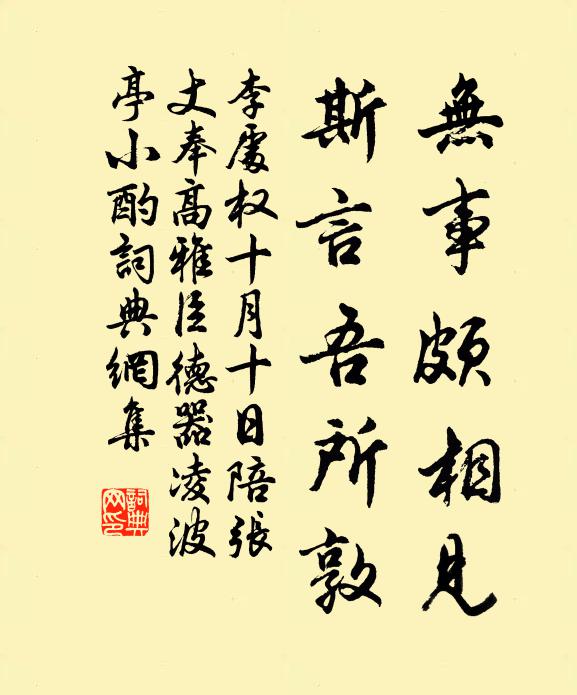 無事頗相見
斯言吾所敦
李處权十月十日陪張
丈奉高雅臣德器凌波
亭小酌詞典網集
詞典网印